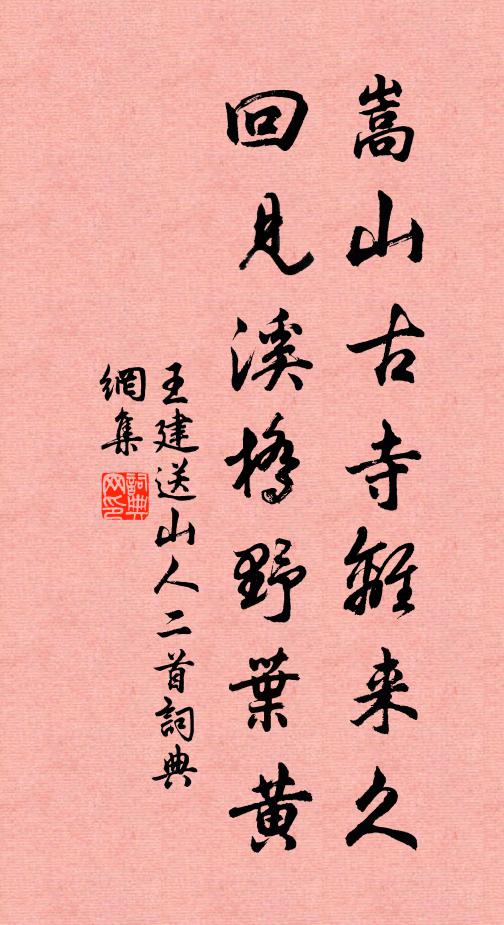 嵩山古寺離来久
回見溪橋野葉黄
王建送山人二首詞典
網集
詞典
网印